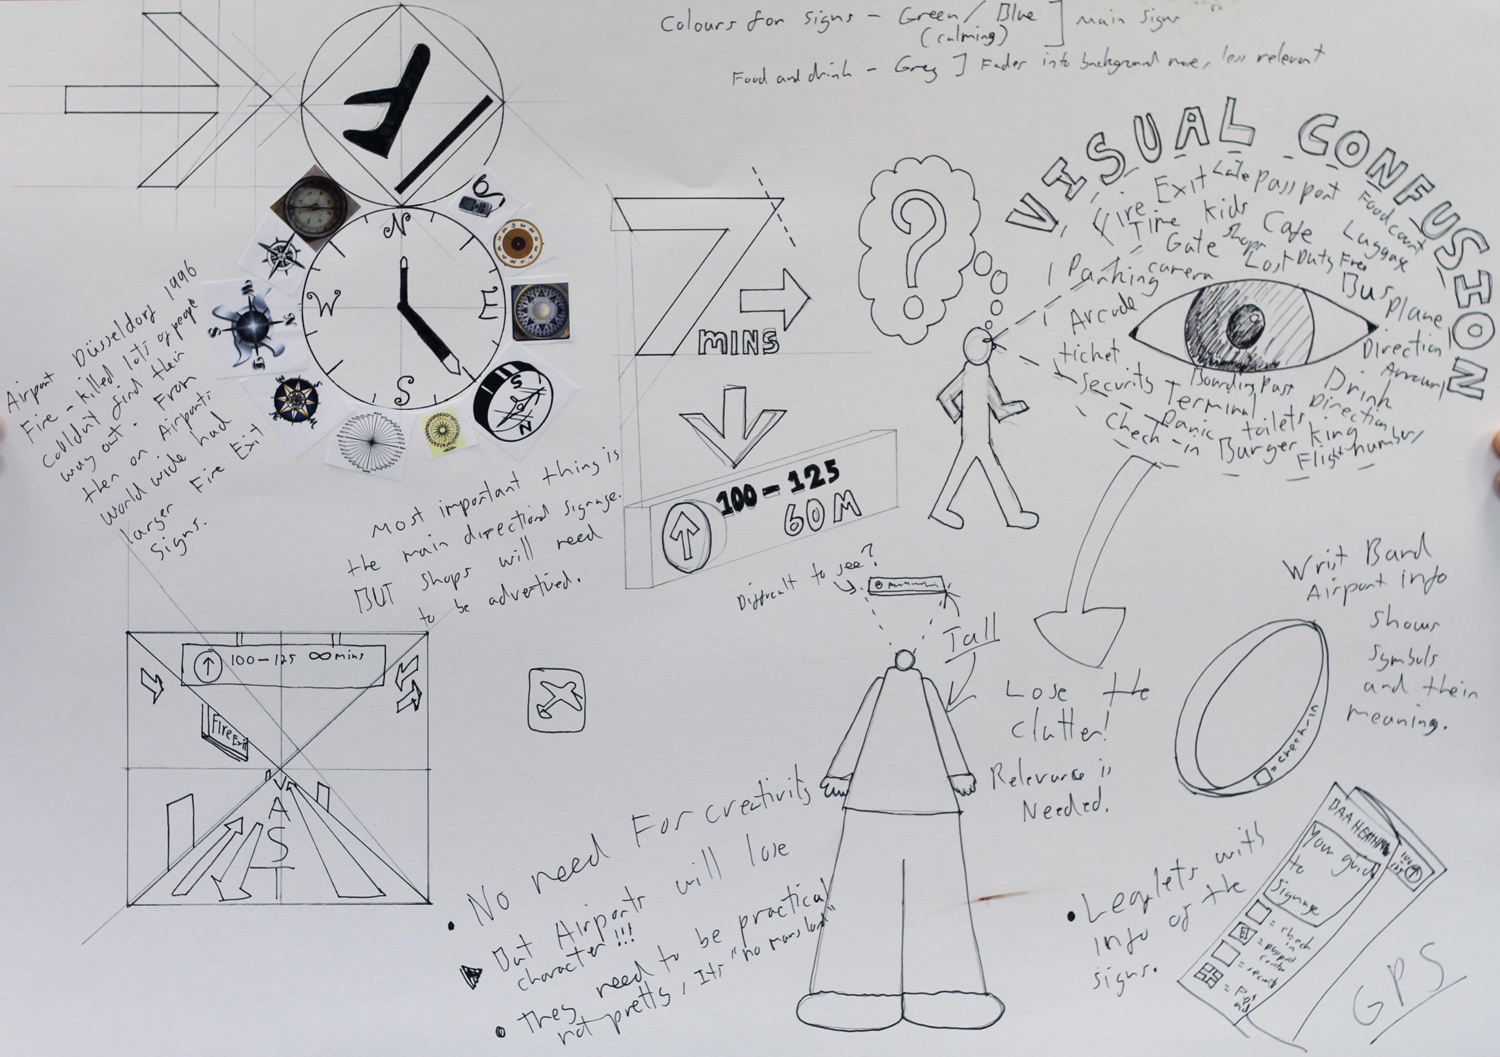 Colours for signs - Green / Blue ] main signs
(calming)
Food and drink - Grey ] Fades into background more, less relevant
VISUAL CONFUSION
Fire Exit Late Passport Food court
Time Kids Cafe Luggage
Gate Shops Lost Duty Free
Parking camera Bus Plane
Arcade Direction
ticket Arrival
Security Boarding Pass Drink
Terminal Direction
Panic toilets
Check-in Burger King
Flight number
?
N
E
S
W
Airport Düsseldorf 1996
Fire - killed lots of people
couldn't find their
way out - From
then on Airports
World wide had
larger Fire Exit
Signs.
7
MINS
100-125
60M
Most important thing is
the main directional signage.
BUT shops will need
to be advertised.
Difficult to see?
Tall
100-125 ∞mins
Fire Exit
Lose the
Clutter!
Relevance is
Needed.
Wrist Band
Airport info
shows
symbols
and their
meaning.
= check-in
• No need For creativity
But Airports will lose
character!!!
• they need to be practical
not pretty, It's "no mans land"
• Leaflets with
info of the
signs.
Your guide
to
Signage
= check
in
GPS